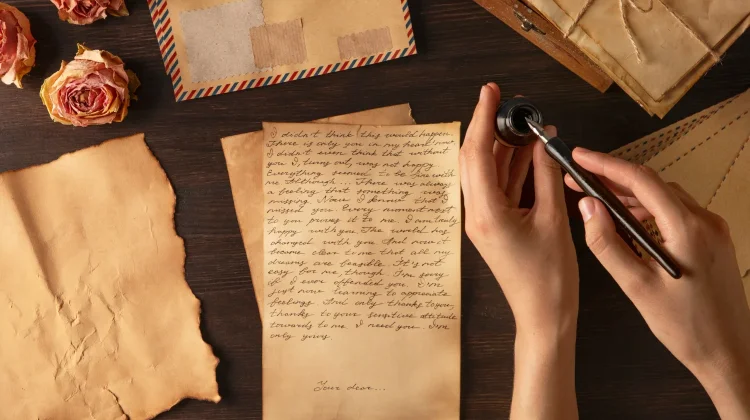 I didn't think this would happen.
There is only you in my heart now.
I didn't even think that without
you I, turns out, was not happy.
Everything seemed to be fine with
me. Although... There was always
a feeling that something was
missing. Now I know that I
missed you. Every moment next
to you proves it to me. I am truly
happy with you. The world has
changed with you. And now it
became clear to me that all my
dreams are feasible. It's not
easy for me, though. I'm sorry
if I ever offended you, I'm
just now learning to appreciate
feelings. And only thanks to you,
thanks to your sensitive attitude
towards to me. I need you. I'm
only yours.
Your dear...